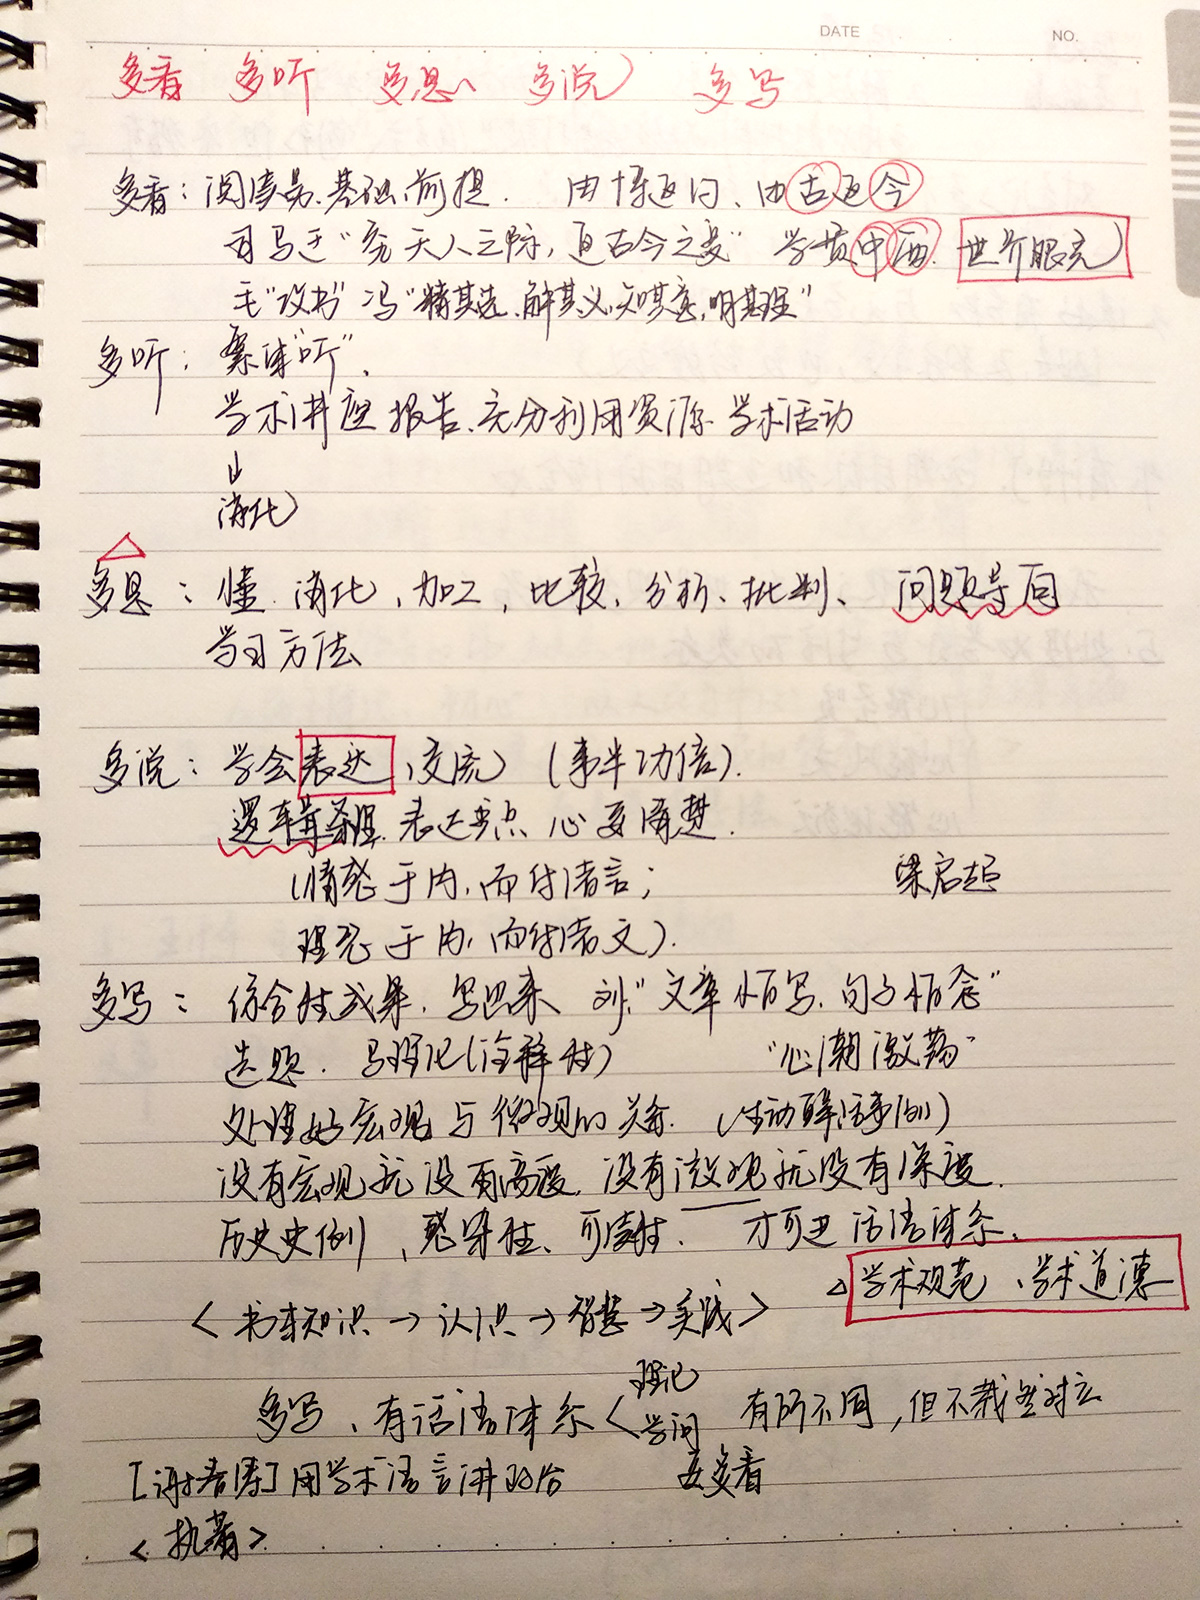 DATE NO.
多看 多听 多思 多说 多写
多看：阅读量、基础、前提. 由博返约、由古返今
司马迁“究天人之际，通古今之变” 学贯中西. 世界眼光
毛“攻书” 冯“精其选、解其义、知其意，明其理”
多听：要课“听”、
学术讲座 报告、充分利用资源 学术活动
↓
消化
多思：懂 消化、加工，比较、分析、批判、问题导向
学习方法
多说：学会表达、交流（事半功倍）.
逻辑条理. 表达要点 心要清楚.
（情発于内，而付诸言； 梁启超
理発于内，而付诸文）.
多写：综合性成果. 写出来 刘：“文章怕写. 句子怕念”
选题. 马理论（诠释性） “心潮激荡”
处理好宏观与微观的关系.（生动鲜活事例）
没有宏观就没有高度. 没有微观就没有深度.
历史史例、感染性、可读性. 才可进话语体系.
△学术规范、学术道德
<书本知识→认识→智慧→实践>
多写、有话语体系< 理论 学问 有所不同，但不截然对立
[谢春涛]用学术语言讲政治 要多看
<执着>